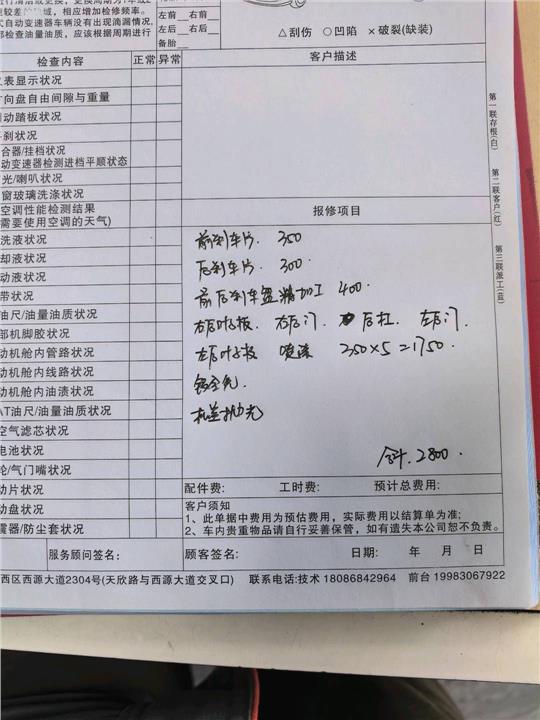 行清洁或更换，更换周期为1年或2
较差的地域，相应增加检修频率。
式自动变速器车辆没有出现滴漏情况，
部检查油量油质，应该根据周期进行
左前 右前
左后 右后
备胎
△刮伤 ○凹陷 ×破裂(缺装)
检查内容 正常 异常 客户描述
仪表显示状况
方向盘自由间隙与重量
制动踏板状况
手刹状况
合器/挂档状况
动变速器检测进档平顺状态
灯光/喇叭状况
窗玻璃洗涤状况
空调性能检测结果
需要使用空调的天气)
洗液状况
却液状况
动液状况
带状况
油尺/油量油质状况
部机脚胶状况
动机舱内管路状况
动机舱内线路状况
动机舱内油渍状况
AT油尺/油量油质状况
空气滤芯状况
电池状况
轮/气门嘴状况
动片状况
动盘状况
震器/防尘套状况
第一联存根(白)
第二联客户(红)
第三联派工(蓝)
报修项目
前刹车片. 350
后刹车片. 300
前后刹车盘精加工 400
右后叶子板. 右后门. 后杠. 左后门.
左后叶子板 喷漆 350×5=1750
机盖抛光
合计. 2800
配件费: 工时费: 预计总费用:
客户须知
1、此单据中费用为预估费用，实际费用以结算单为准;
2、车内贵重物品请自行妥善保管，如有遗失本公司恕不负责。
服务顾问签名: 顾客签名: 日期: 年 月 日
西区西源大道2304号(天欣路与西源大道交叉口) 联系电话:技术 18086842964 前台 19983067922